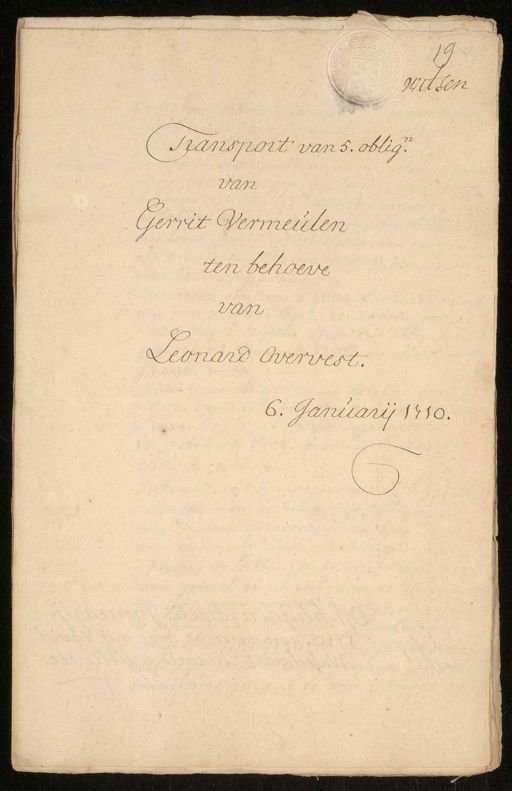 19
witsen
Transport van 5. oblig.n
van
Gerrit Vermeulen
ten behoeve
van
Leonard Overvest.
6. Januarij 1710.